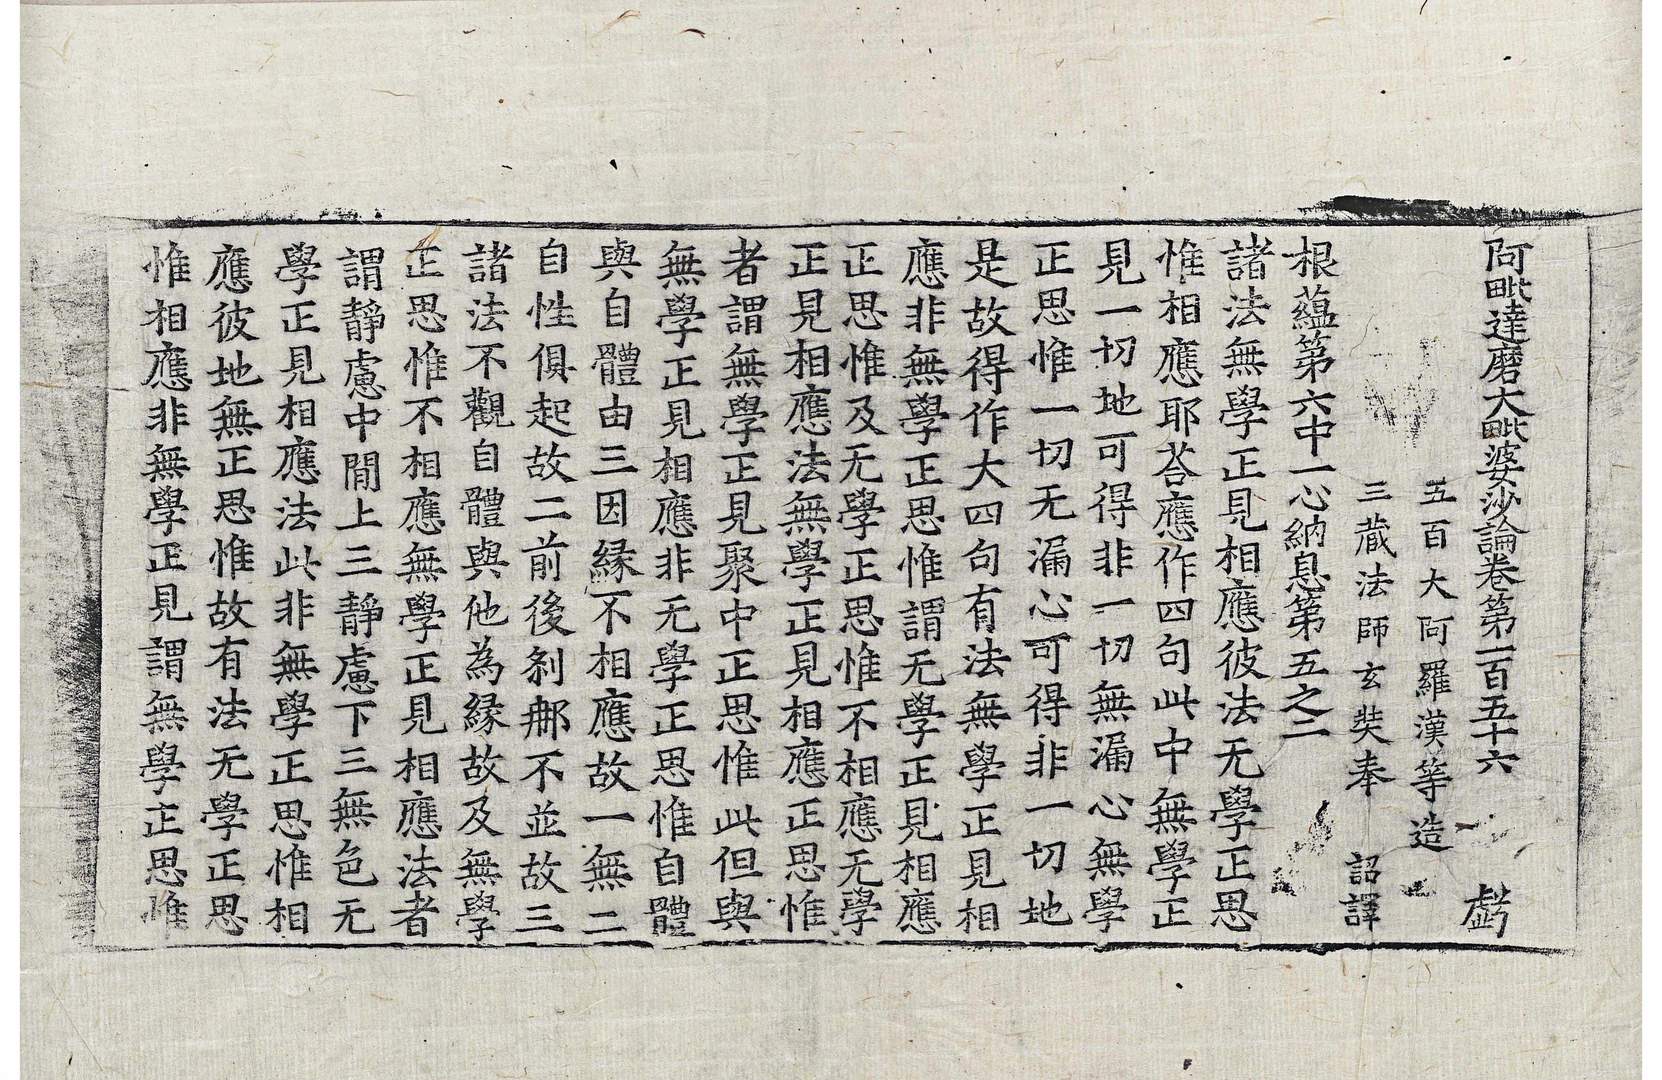 阿毗達磨大毗婆沙論卷第一百五十六 虧
五百大阿羅漢等造
三藏法師玄奘奉 詔譯
根蘊第六中一心納息第五之二
諸法無學正見相應彼法无學正思
惟相應耶荅應作四句此中無學正
見一切地可得非一切無漏心無學
正思惟一切无漏心可得非一切地
是故得作大四句有法無學正見相
應非無學正思惟謂无學正見相應
正思惟及无學正思惟不相應无學
正見相應法無學正見相應正思惟
者謂無學正見聚中正思惟此但與
無學正見相應非无學正思惟自體
與自體由三因緣不相應故一無二
自性俱起故二前後剎那不並故三
諸法不觀自體與他為緣故及無學
正思惟不相應無學正見相應法者
謂靜慮中閒上三靜慮下三無色无
學正見相應法此非無學正思惟相
應彼地無正思惟故有法无學正思
惟相應非無學正見謂無學正思惟